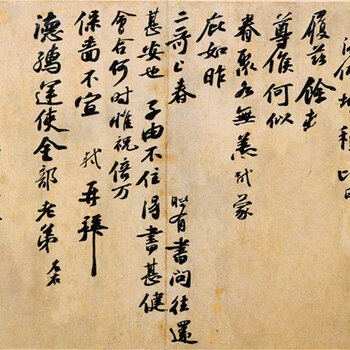 履茲餘寒
尊候何似
眷聚各無恙軾蒙
庇如昨
二哥上春　時有書問往還
甚安也　子由不住得書甚健
會合何時惟祝倍万
保嗇不宣　軾　再拜
德孺運使金部老弟　左右